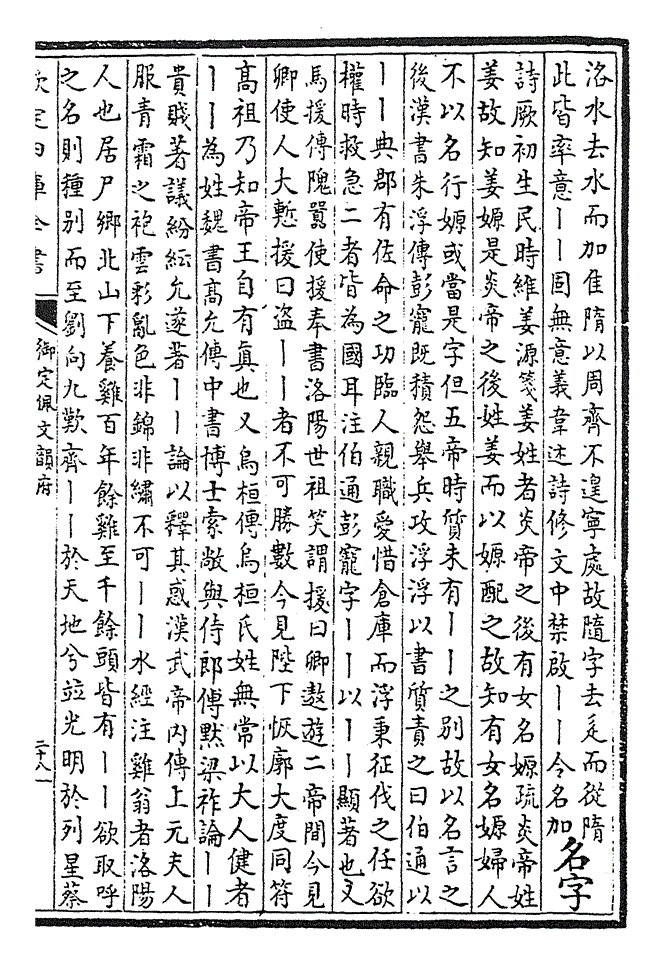 洛水去水而加隹隋以周齊不遑寧處故隨字去辵而從隋
此皆率意丨丨固無意義韋述詩修文中禁啟丨丨今名加
名字
詩厥初生民時維姜源箋姜姓者炎帝之後有女名嫄疏炎帝姓
姜故知姜嫄是炎帝之後姓姜而以嫄配之故知有女名嫄婦人
不以名行嫄或當是字但五帝時質未有丨丨之别故以名言之
後漢書朱浮傳彭寵既積怨舉兵攻浮浮以書質責之曰伯通以
丨丨典郡有佐命之功臨人親職愛惜倉庫而浮秉征伐之任欲
權時救急二者皆為國耳注伯通彭寵字丨丨以丨丨顯著也又
馬援傳隗囂使援奉書洛陽世祖笑謂援曰卿遨遊二帝間今見
卿使人大慙援曰盗丨丨者不可勝數今見陛下恢廓大度同符
高祖乃知帝王自有真也又烏桓傳烏桓氏姓無常以大人健者
丨丨為姓魏書高允傳中書博士索敞與侍郎傅默梁祚論丨丨
貴賤著議紛紜允遂著丨丨論以釋其惑漢武帝内傳上元夫人
服青霜之袍雲彩亂色非錦非繡不可丨丨水經注雞翁者洛陽
人也居尸鄉北山下養雞百年餘雞至千餘頭皆有丨丨欲取呼
之名則種别而至劉向九歎齊丨丨於天地兮竝光明於列星蔡
欽定四庫全書
御定佩文韻府